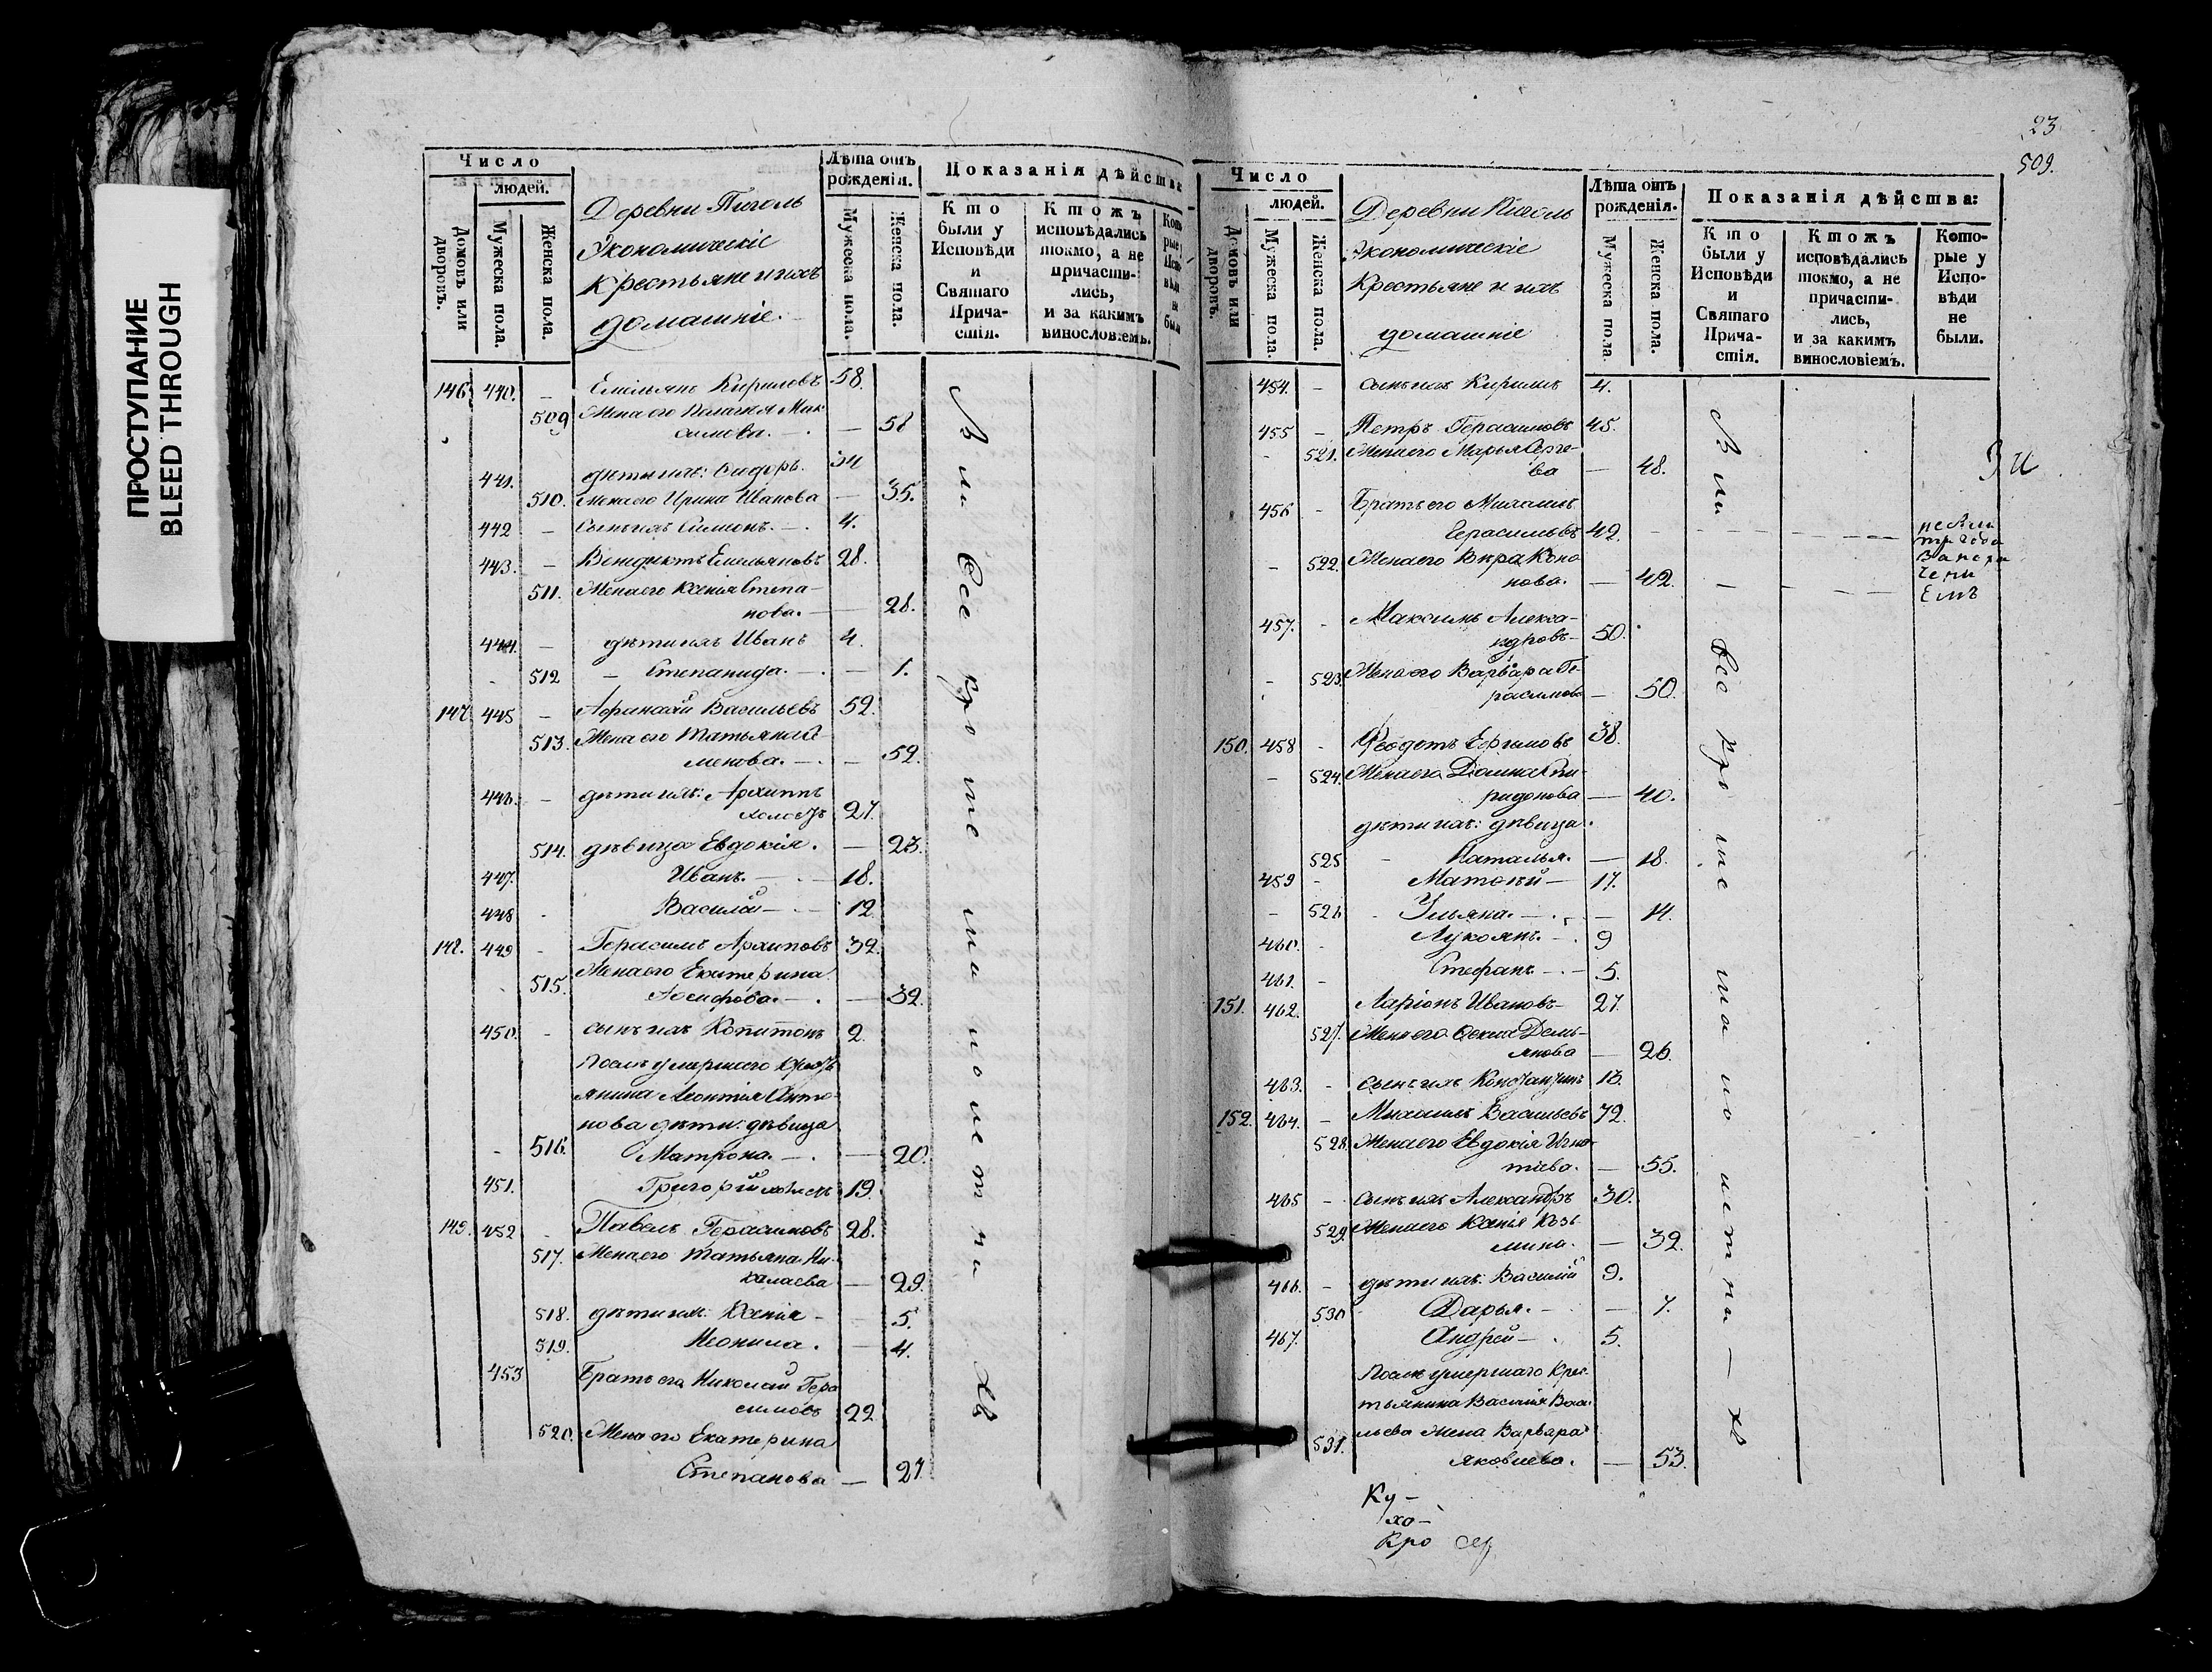 ПРОСТУПАНИЕ
BLEED THROUGH
Число
людей.
Домовъ или дворовъ.
Мужеска пола.
Женска пола.
Деревни Пиголь
Экономическіе
крестьяне и ихъ
домашніе.
Лѣта отъ
рожденія.
Мужеска пола.
Женска пола.
Показанія дѣйства
Кто
были у
Исповѣди
и
Святаго
Прича-
стія.
Ктожъ
исповѣдались
токмо, а не
причасти-
лись,
и за какимъ
винословіемъ.
146. 440. — Емельянъ Кириловъ 58.
509 Жена его Пелагея Мак-
симова. — 58
441. дѣти ихъ: Сидоръ. 34
510. Жена его Ирина Иванова — 35.
442 — Сынъ ихъ Симонъ. — 4.
443. — Венедиктъ Емельяновъ 28.
511. Жена его Ксенія Степа-
нова. — 28.
444. — дѣти ихъ Иванъ 4.
512 — Степанида. — 1.
147. 445 — Афанасій Васильевъ 52.
513. Жена его Татьяна Се-
менова. — 52.
446. — дѣти ихъ: Архиппъ
холостъ 27.
514. дѣвица Евдокія. — 23.
447. Иванъ. — 18.
448 Василій — 12
148. 449 Герасимъ Архиповъ 32.
515. Жена его Екатерина
Іосифова. — 32.
450. сынъ ихъ Копитонъ 2.
Послѣ умершаго крест
янина Леонтія Анто-
нова дѣти: дѣвица
516. Матрона. — 20.
451. Григорій холостъ 19.
149. 452 Павелъ Герасимовъ 28.
517. Жена его Татьяна Ни-
колаева — 29.
518. дѣти ихъ: Ксенія — 5.
519. Неонила. — 4.
453 Братъ его Николай Гера
симовъ 22
520. Жена его Екатерина
Степанова — 27.
23
509.
Число
людей.
Домовъ или дворовъ.
Мужеска пола.
Женска пола.
Деревни Пиголь
Экономическіе
Крестьяне и ихъ
домашніе
Лѣта отъ
рожденія.
Мужеска пола.
Женска пола.
Показанія дѣйства:
Кто
были у
Исповѣди
и
Святаго
Прича-
стія.
Ктожъ
исповѣдались
токмо, а не
причасти-
лись,
и за какимъ
винословіемъ.
Кото-
рые у
Испо-
вѣди
не
были.
454. — сынъ ихъ Кирилъ 4.
455 — Петръ Герасимовъ 45.
521. Жена его Марья Серге-
ва — 48.
456 — Братъ его Михаилъ
Герасимовъ 42.
522. Жена его Вѣра Коно
нова. — 42.
457. — Максимъ Алекса-
ндровъ — 50.
523. Жена его Варвара Ге-
расимова — 50.
150. 458 — Феодотъ Ефимовъ 38.
524. Жена его Домна Спи-
ридонова — 40.
дѣти ихъ: дѣвица
525 — Наталья. — 18.
459 — Матвѣй — 17.
526 — Ульяна. — 14.
460. — Лукоянъ. — 9
461. — Стефанъ — 5.
151. 462. Ларіонъ Ивановъ — 27.
527. Жена его Фекла Демь-
янова — 26.
463. — сынъ ихъ Константинъ 13.
152. 464. — Михаилъ Васильевъ 72.
528. Жена его Евдокія Игна-
тіева. — 55.
465 — сынъ ихъ Александръ 30.
529. Жена его Ксенія Козь
мина. — 32.
466. — дѣти ихъ: Василій 9.
530 Дарья. — 7.
467. Андрей — 5.
Послѣ умершаго Крес-
тьянина Василія Васи-
льева Жена Варвара
531. Яковлева. — 53.
Ку-
хо-
Кро